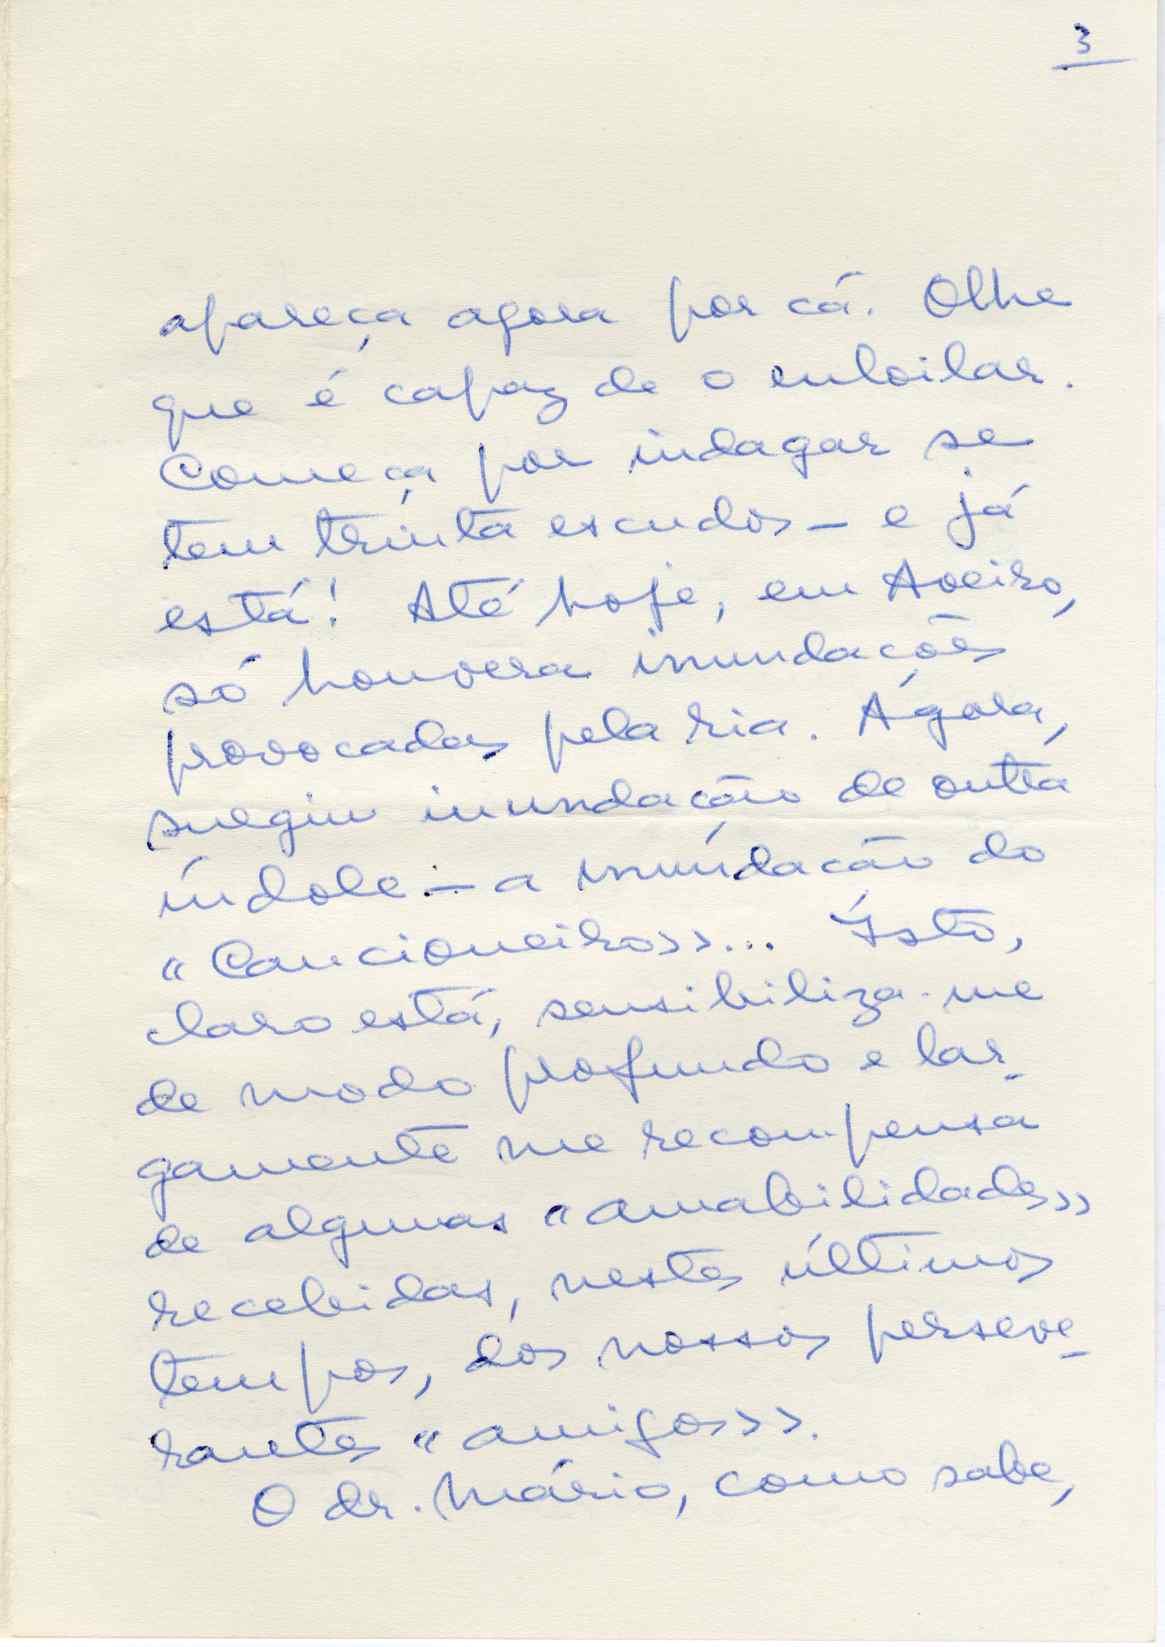 3
apareça agora por cá. Olhe
que é capaz de o enloilar.
Começa por indagar se
tem trinta escudos – e já
está! Até hoje, em Aveiro,
só houvera inundações
provocadas pela ria. Agora,
surgiu inundação de outra
índole – a inundação do
«Cancioneiro»... Isto,
claro está, sensibiliza-me
de modo profundo e lar-
gamente me recompensa
de algumas «amabilidades»
recebidas, nestes últimos
tempos, dos nossos perseve-
rantes «amigos».
O dr. Mário, como sabe,